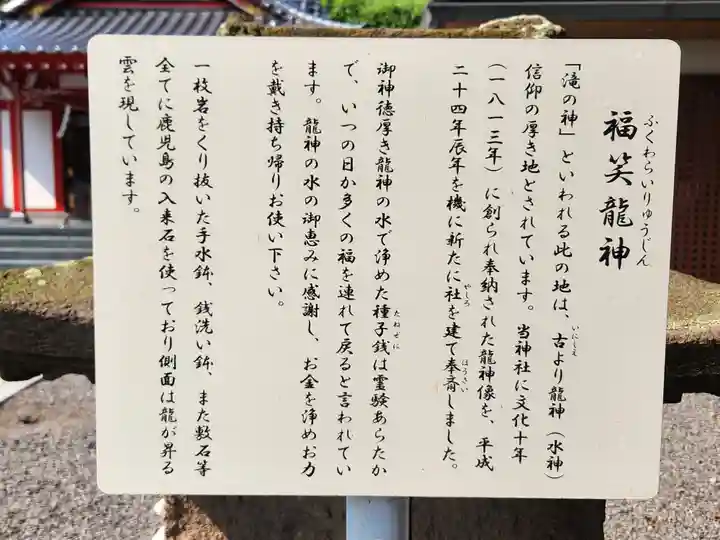 福笑龍神
ふくわらいりゅうじん
「滝の神」といわれる此の地は、古より龍神（水神）
いにしえ
信仰の厚き地とされています。当神社に文化十年
（一八一三年）に創られ奉納された龍神像を、平成
二十四年辰年を機に新たに社を建て奉斎しました。
やしろ
ほうさい
御神徳厚き龍神の水で浄めた種子銭は霊験あらたか
たねぜに
で、いつの日か多くの福を連れて戻ると言われてい
ます。龍神の水の御恵みに感謝し、お金を浄めお力
を戴き持ち帰りお使い下さい。
一枚岩をくり抜いた手水鉢、銭洗い鉢、また敷石等
全てに鹿児島の入来石を使っており側面は龍が昇る
雲を現しています。